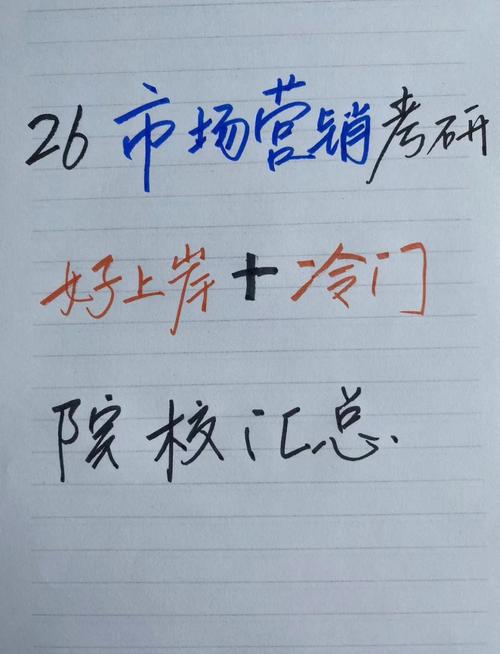 26市场营销考研
好上岸+冷门
院校汇总.